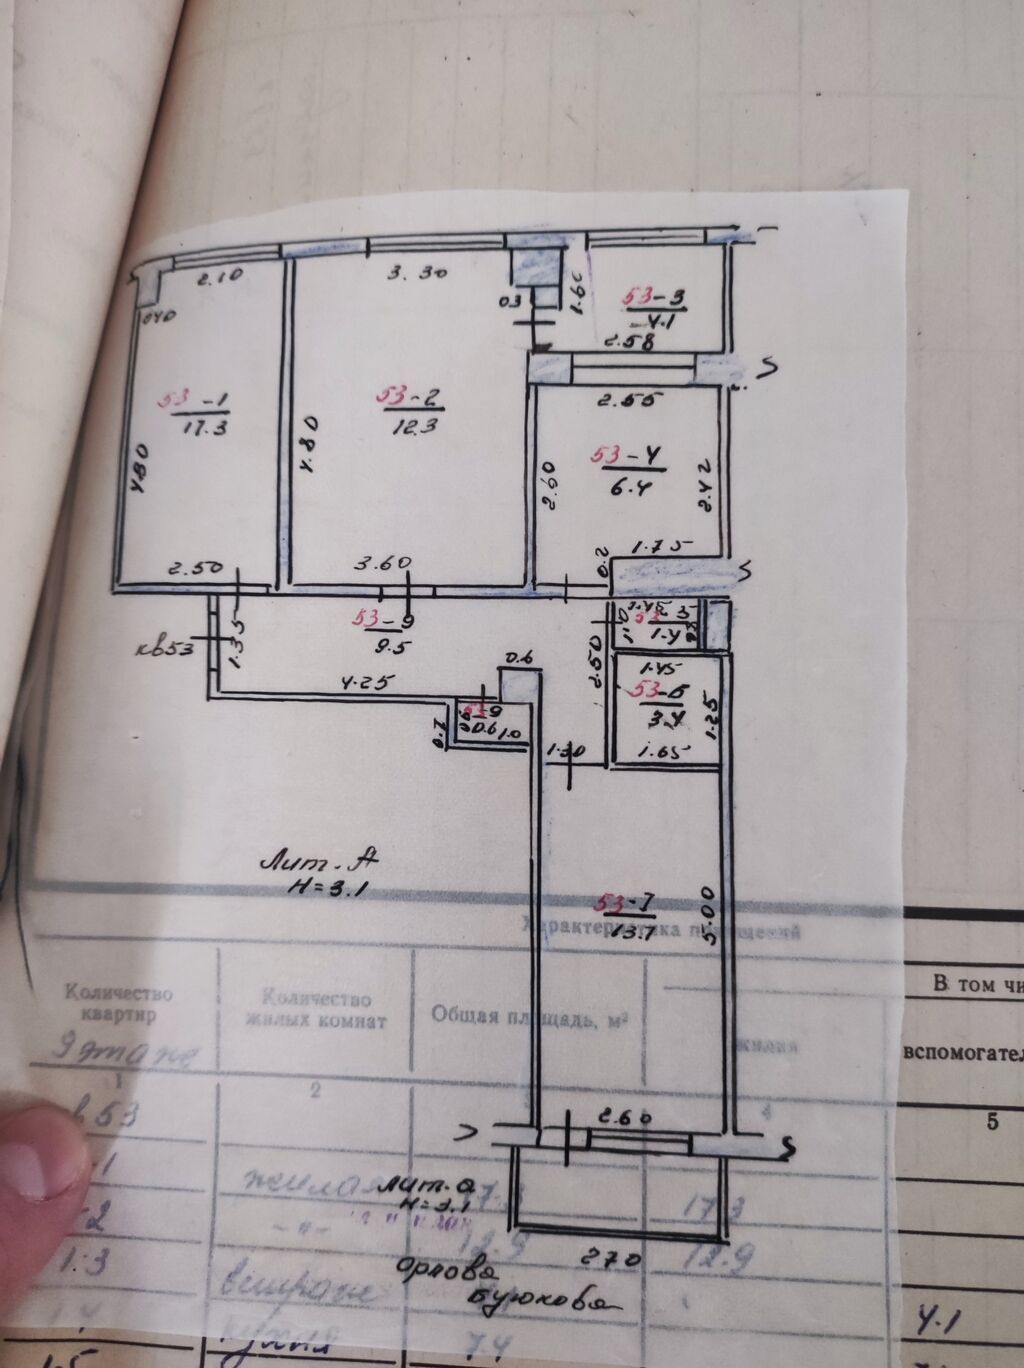 2.10
3.30
1.60
0.3
53-3
4.1
2.58
0.40
53-1
17.3
53-2
12.3
2.55
53-4
6.4
4.80
4.80
2.60
2.42
2.50
3.60
0.2
1.75
53-9
9.5
кв53
1.35
1.4
4.25
0.6
2.50
1.45
3.4
1.25
0.6
1.0
0.7
1.30
1.65
Лит. А
H=3.1
53-7
13.7
5.00
Характеристика помещений
Количество квартир
Количество жилых комнат
Общая площадь, м²
жилая
В том чи
вспомогател
9 этаж
1
2
4
5
53
2.60
Лит. а
H=3.1
жилая
17.3
12.9
12.9
2.70
Орлова
Буюкова
1.3
4.1
кухня
7.4
1.5